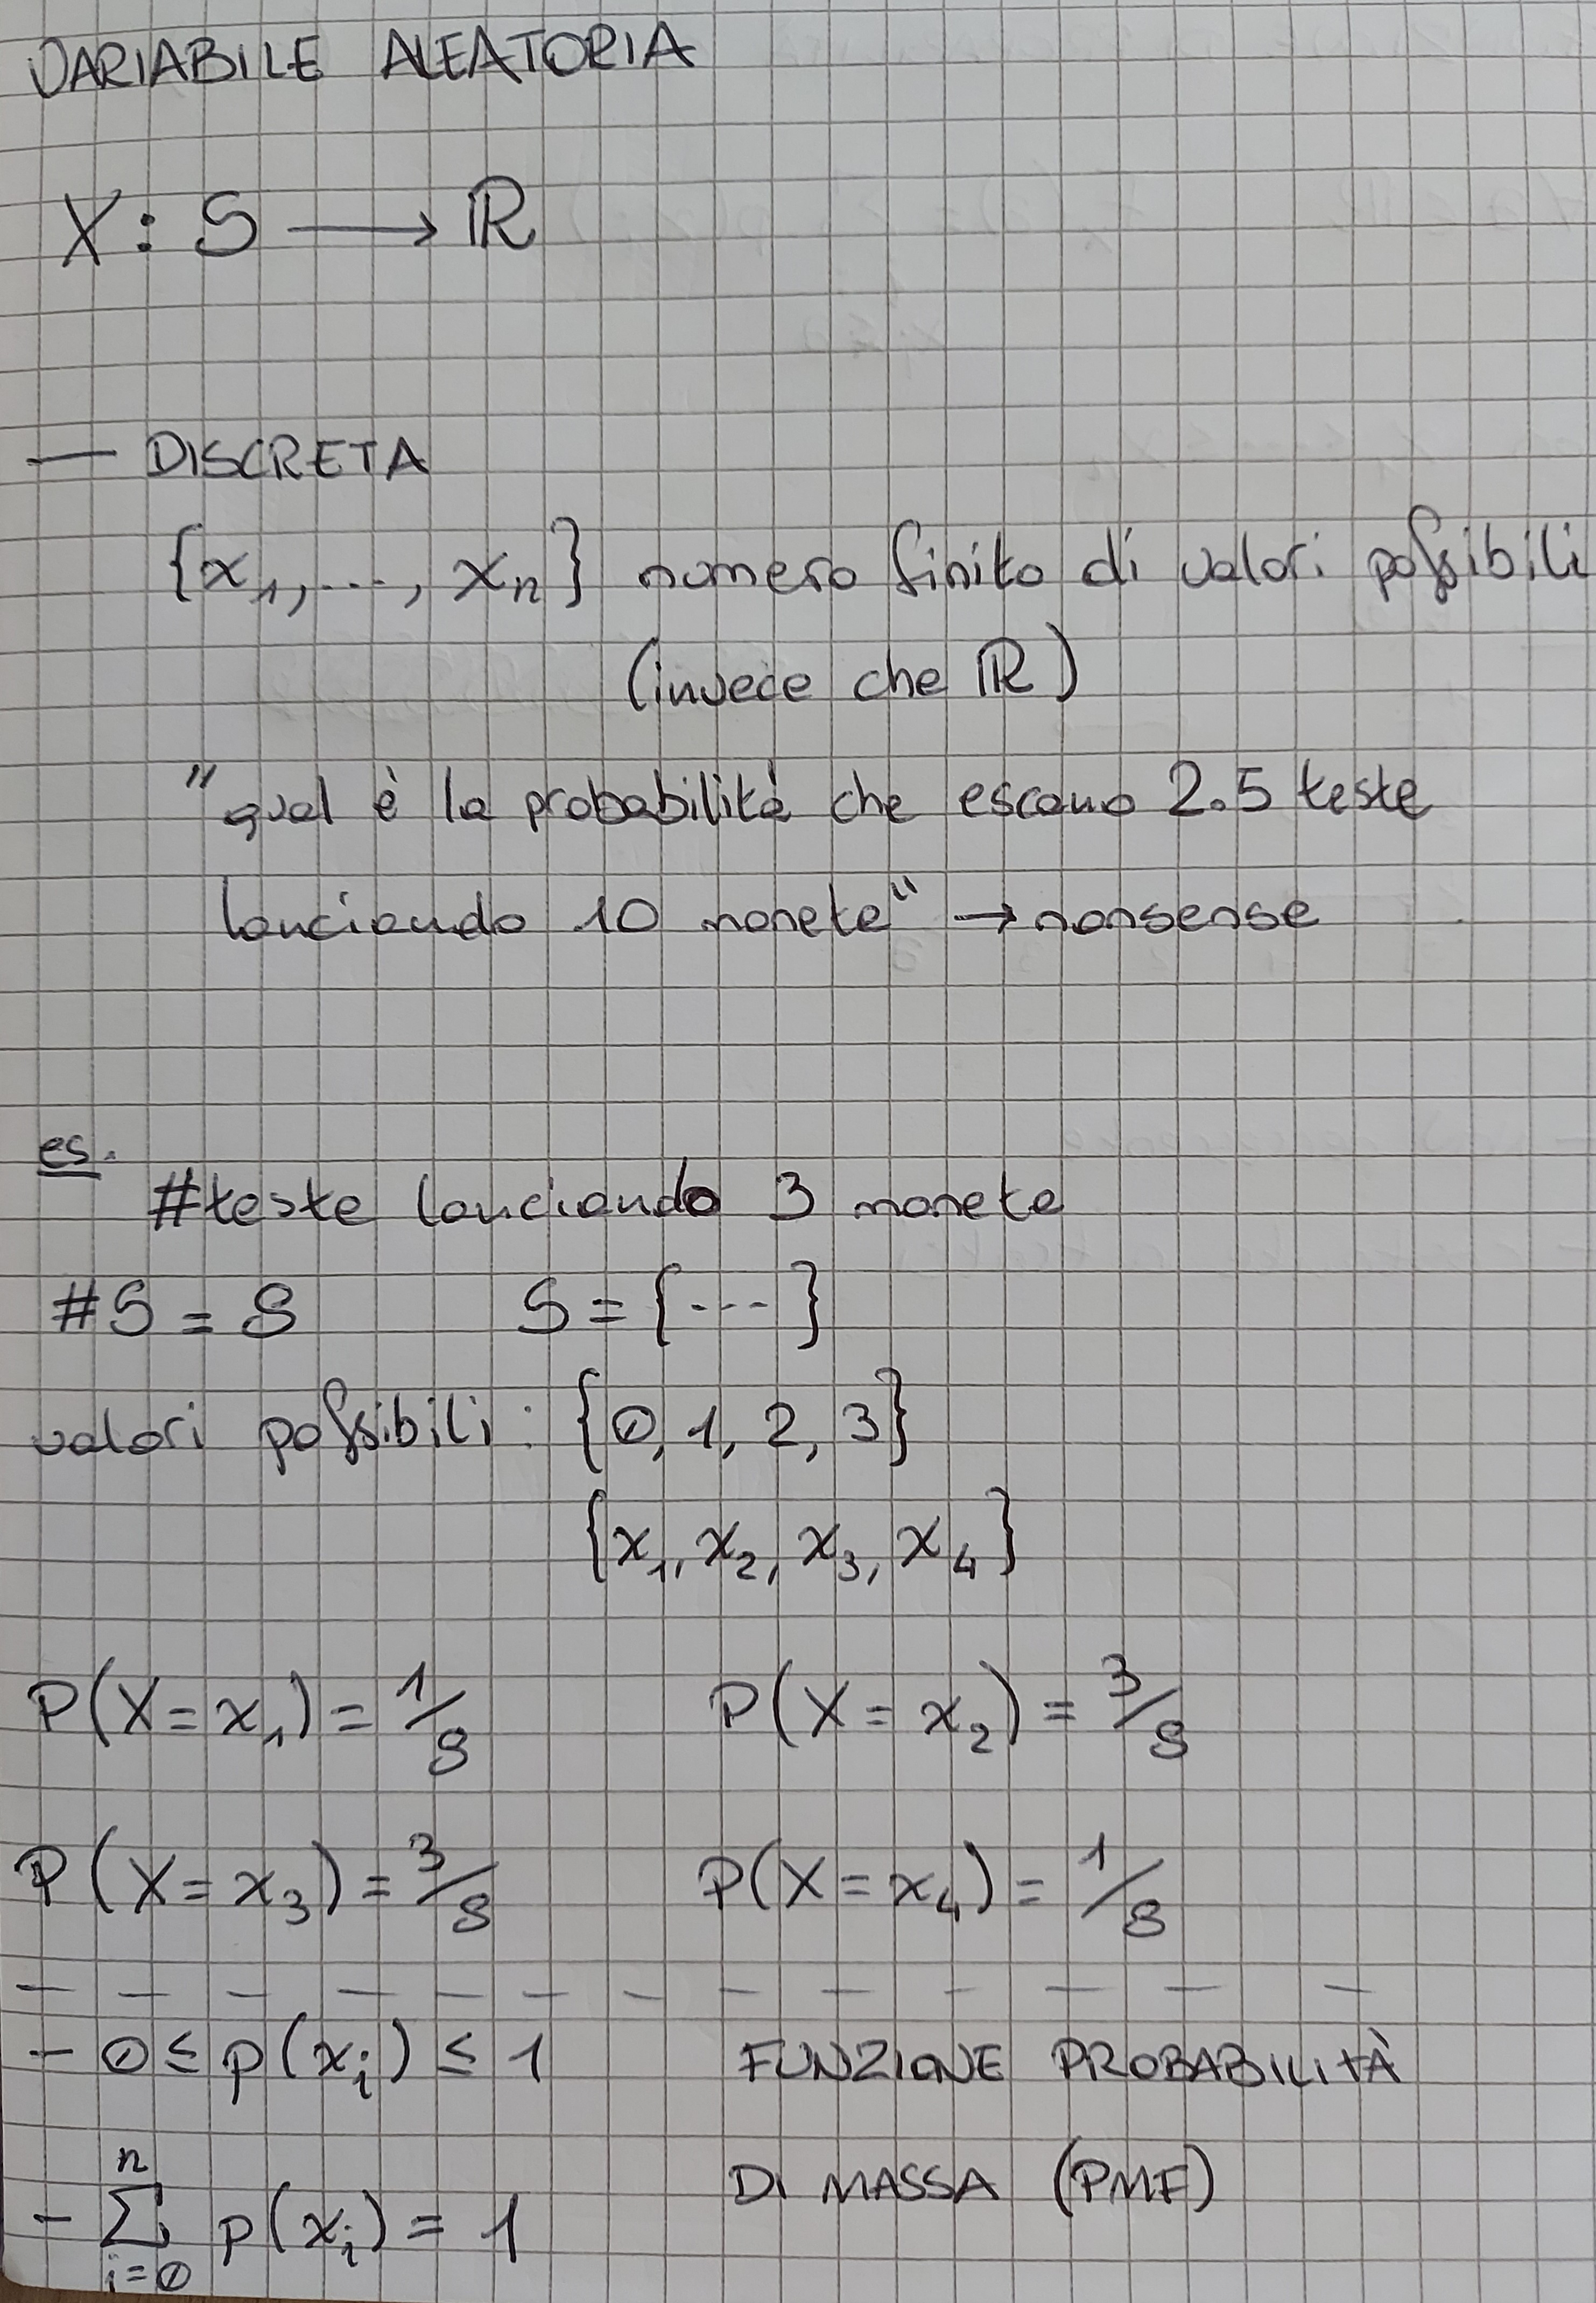 VARIABILE ALEATORIA
X : S → ℝ
— DISCRETA
{x₁, ..., xₙ} numero finito di valori possibili
(invece che ℝ)
"qual è la probabilità che escano 2.5 teste
lanciando 10 monete" → nonsense
es.
#teste lanciando 3 monete
#S = 8 S = {---}
valori possibili: {0, 1, 2, 3}
{x₁, x₂, x₃, x₄}
P(X = x₁) = 1/8 P(X = x₂) = 3/8
P(X = x₃) = 3/8 P(X = x₄) = 1/8
- 0 ≤ p(xᵢ) ≤ 1 FUNZIONE PROBABILITÀ
DI MASSA (PMF)
- ∑ⁿᵢ₌₀ p(xᵢ) = 1